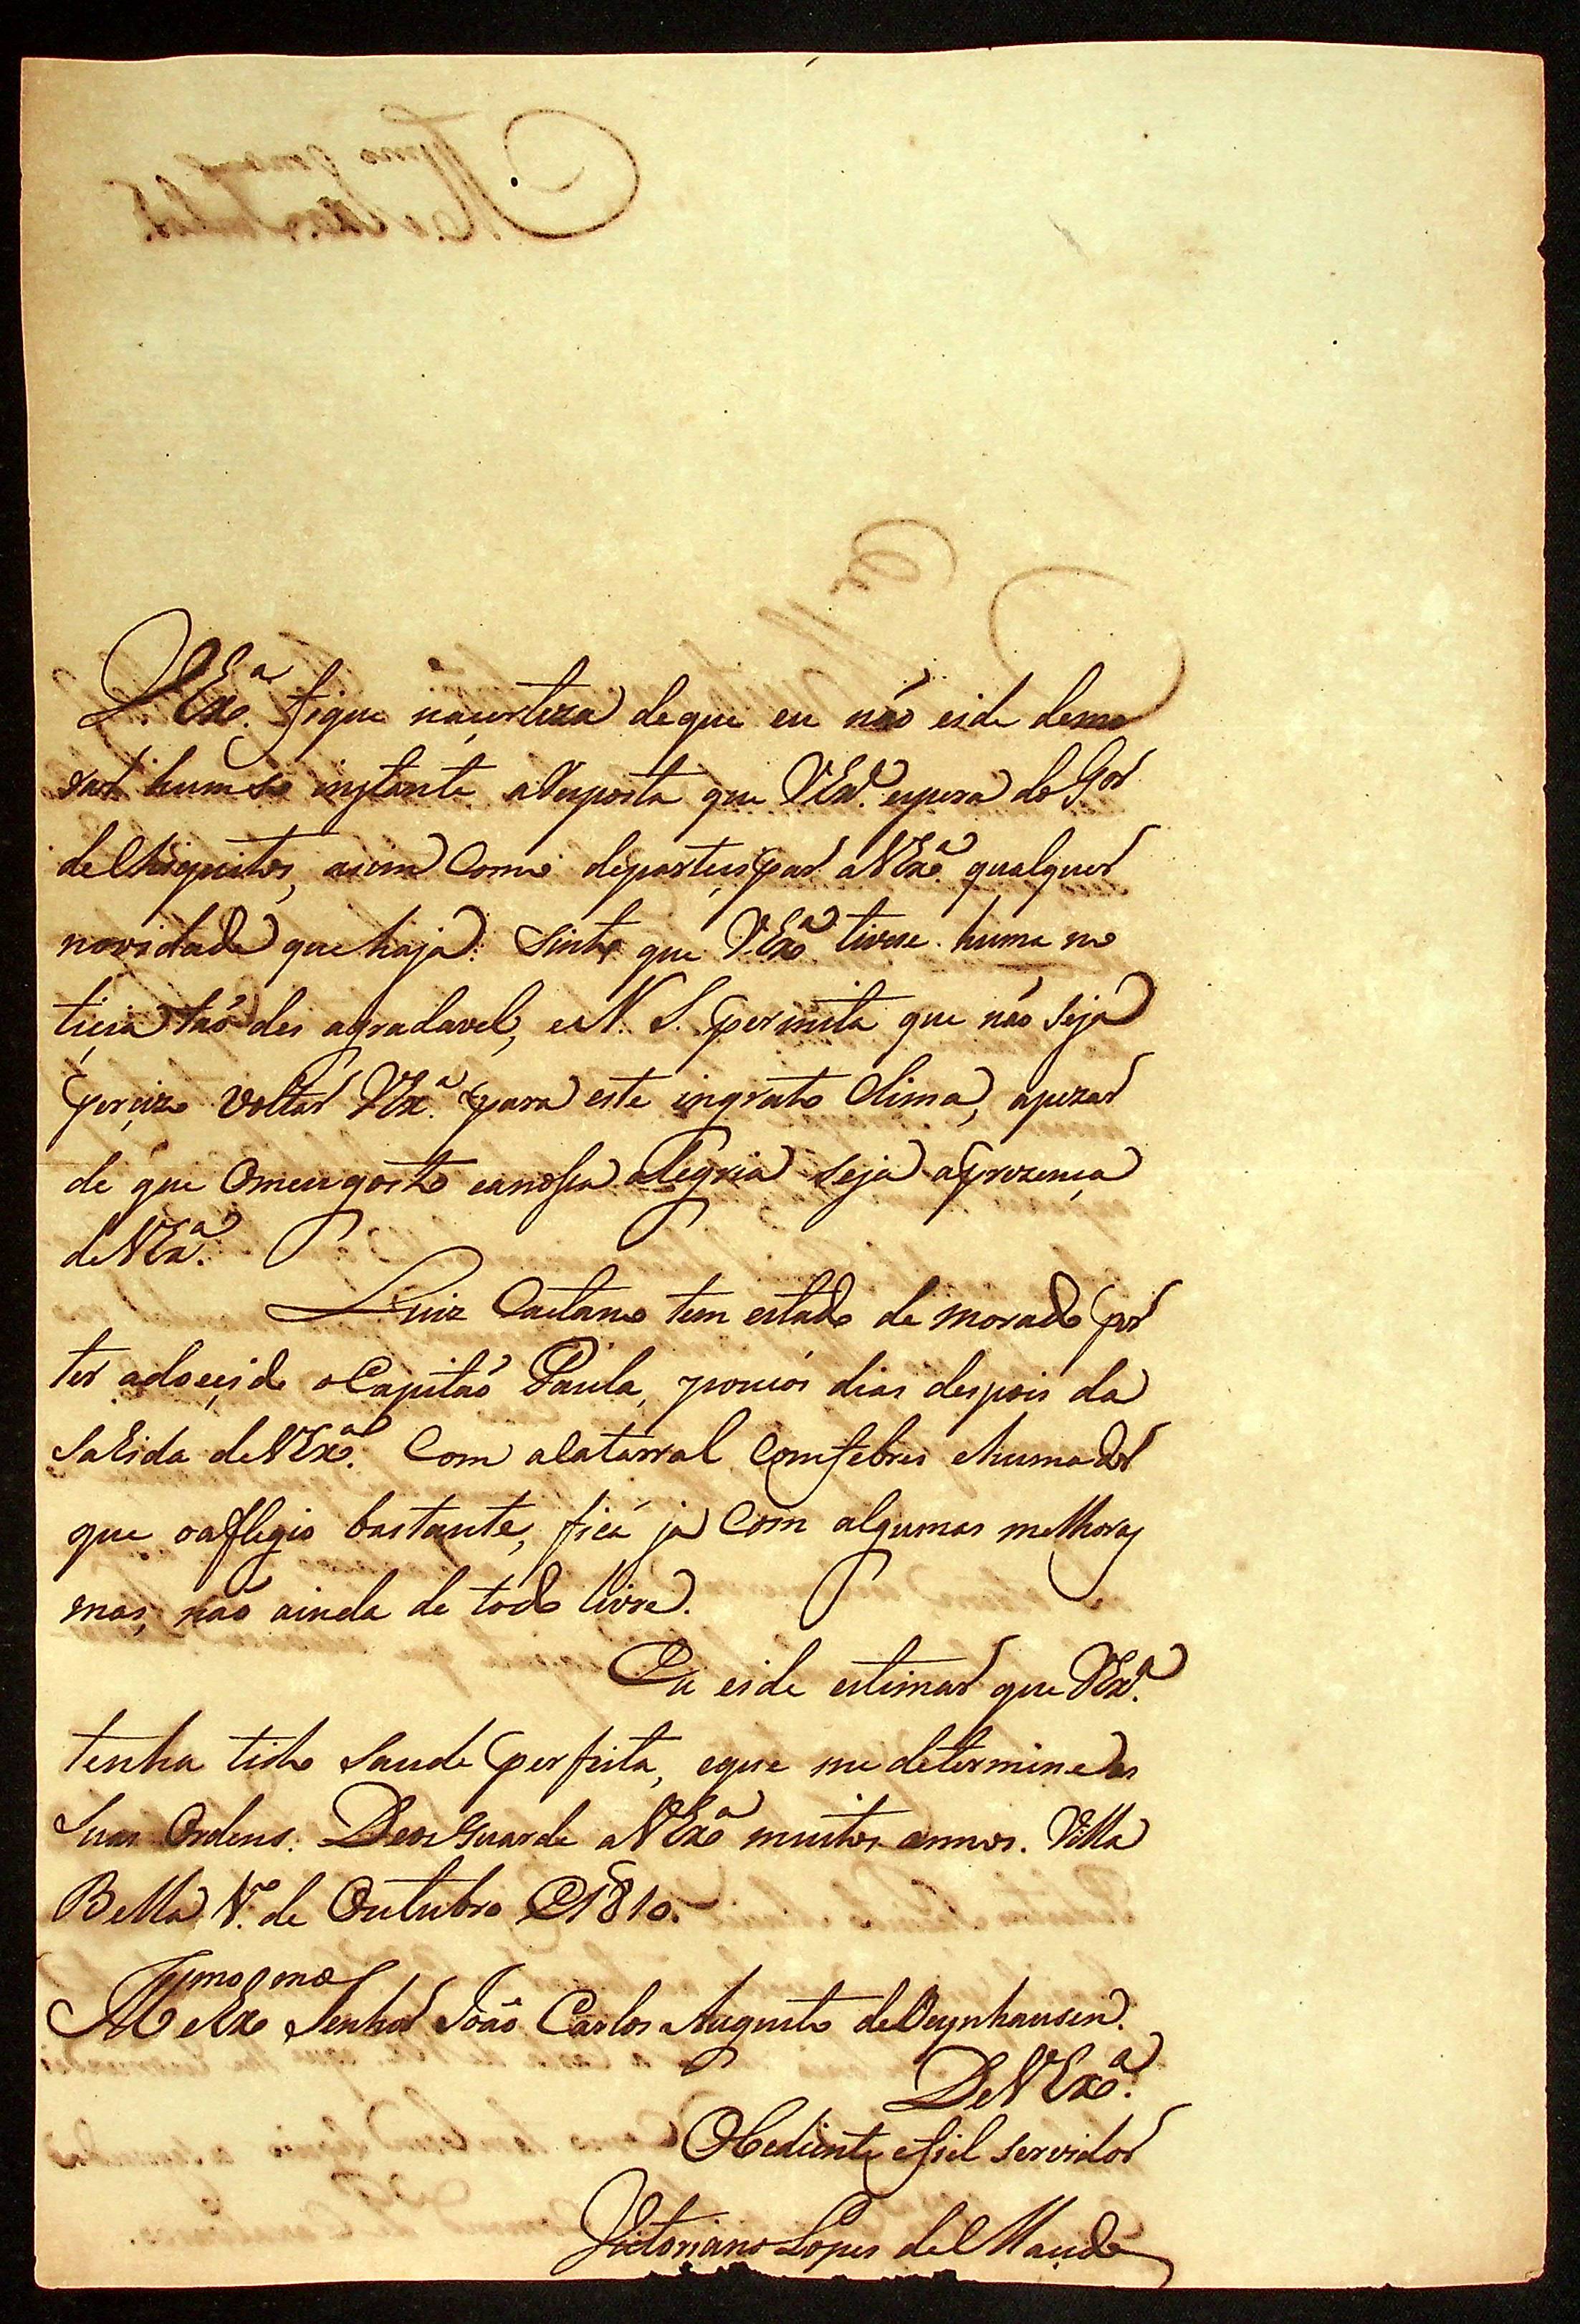 V. Exª. fique naçerteza deque eu naó eide demo
rar hum só instante aResposta que VExª. espera do Gor
deChiquitos, asim Como departeçipar aVExª. qualquer
novidade que haja: Sinto que VExª. tivese huma no
tiçia taó des agradavel, eN. S. permita que naó Seja
perçizo voltar VExª. para este ingrato Clima, apezar
de que Omeu gosto eanossa alegria Seja aprezença
deVExª.
Luiz Caetano tem estado de morado por
ter adoeçido oCapitaó Paula, poucos dias despois da
Sahida deVExª. Com aCatarral Comfebres ehuma dor
que oaflegio bastante, fica já Com algumas melhoras
mas, naó ainda de todo livre.
Eu eide estimar que VExª.
tenha tido Saude perfeita, eque me determine as
Suas Ordens. Deos Guarde aVExª. muitos annos. Villa
Bella de Outubro 1810.
Illmo eExmo Senhor Joaõ Carlos Augusto deOeynhausen.
DeVExª.
Obediente efiel Servidor
Victoriano Lopes